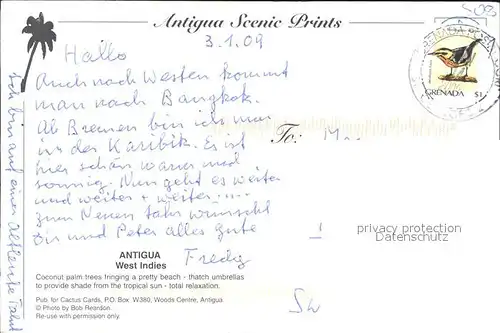 Antigua Scenic Prints
3.1.09
Hallo
Auch nach Westen kommt
man nach Bangkok.
Ab Bremen bin ich nun
in der Karibik. Es ist
hier schön warm und
sonnig. Nun geht es weiter
und weiter + weiter.....
zum Neuen Jahr wünscht
Dir und Peter alles gute
Fredy
Ich bin auf einer Altleute Fahrt
To:
GRENADA $1
ANTIGUA
West Indies
Coconut palm trees fringing a pretty beach - thatch umbrellas
to provide shade from the tropical sun - total relaxation.
Pub. for Cactus Cards, P.O. Box W380, Woods Centre, Antigua.
© Photo by Bob Reardon.
Re-use with permission only.
privacy protection
Datenschutz